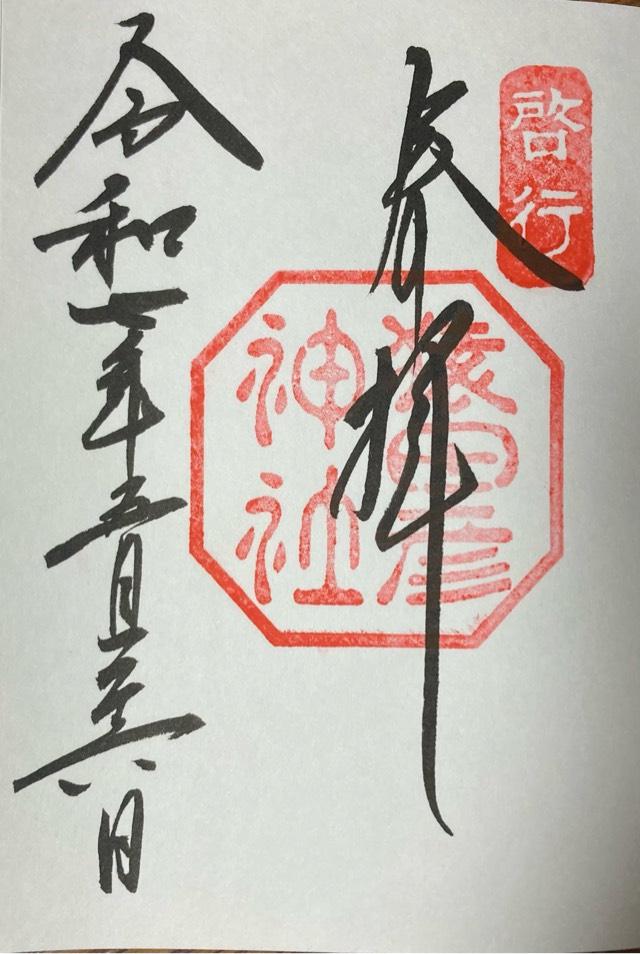 啓行
奉拝
猿田彦
神社
令和七年五月二十六日